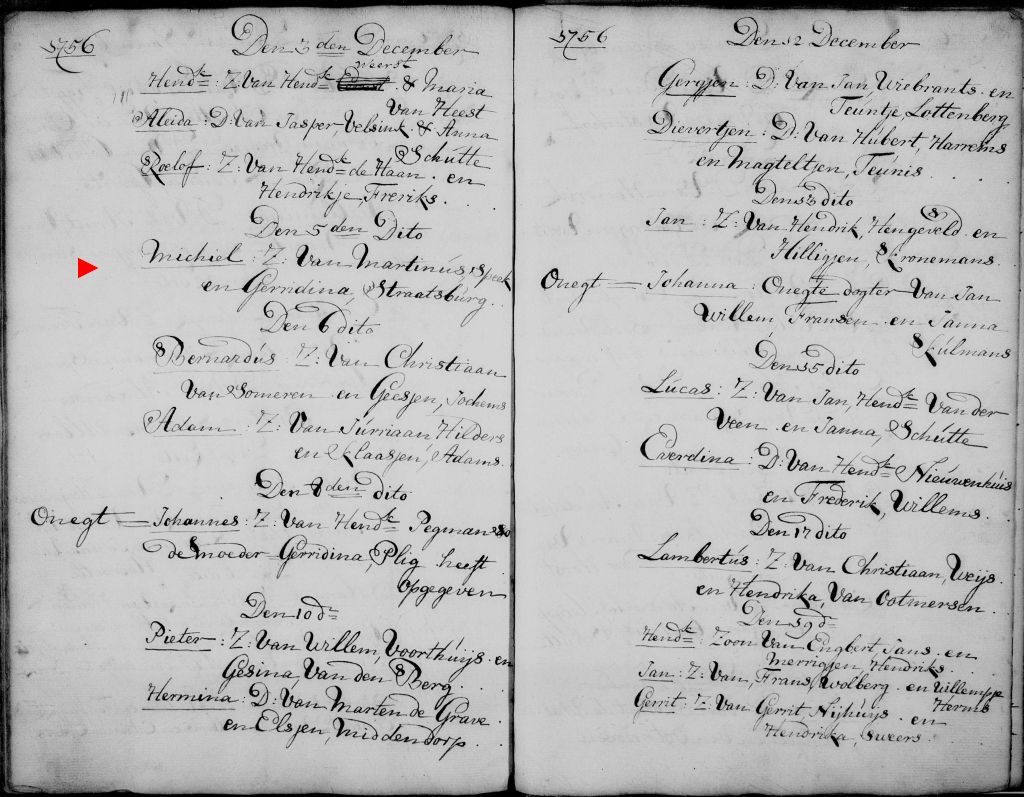 1756
Den 3 den December
Weerst
Hend.k : Z: Van Hend.k & Maria
Van Heest
Aleida : D: Van Jasper, Velsink & Anna
Schutte
Roelof : Z: Van Hend.k de Haan . en
Hendrikje, Freriks .
Den 5 den Dito
Michiel : Z: Van Martinús, Speek
en Gerridina, Straatsbúrg .
Den 6 dito
Bernardús : Z: Van Christiaan
Van Someren en Geesjen, Jochems
Adam : Z: Van Júrriaan Hilders
en Klaasjen, Adams .
Den 8 den dito
Onegt = Johannes : Z: Van Hend.k Pegman so
de moeder Gerridina, Plig heeft
Opgegeven
Den 10 d.o
Pieter : Z: Van Willem, Voorthúijs . en
Gesina, Van den Berg .
Hermina : D: Van Marten de Grave
en Elsjen, Middendorp .
1756
Den 12 December
Gergjen : D: Van Jan Wiebrants . en
Teuntje, Lottenberg
Dievertjen : D: Van Húbert, Harrems
en Magteltjen, Teúnis .
Den 13 dito
Jan : Z: Van Hendrik, Hengeveld . en
Hilligjen, Kronemans .
Onegt = Johanna : Onegte dogter Van Jan
Willem Fransen en Janna
Kúlmans
Den 15 dito
Lúcas : Z: Van Jan, Hend.k Van der
Veen . en Janna, Schútte
Everdina : D: Van Hend.k Nieúwenhúis
en Frederik, Willems .
Den 17 dito
Lambertús : Z: Van Christiaan, Weijs .
en Hendrika, Van Ootmersen .
Den 19 d.o
Hend.k : Zoon Van Engbert, Jans . en
Merrigjen, Hendriks .
Jan : Z: Van, Frans, Wolberg . en Willempje
Herms
Gerrit : Z: Van Gerrit, Nijhúijs . en
Hendrika, Sweers .